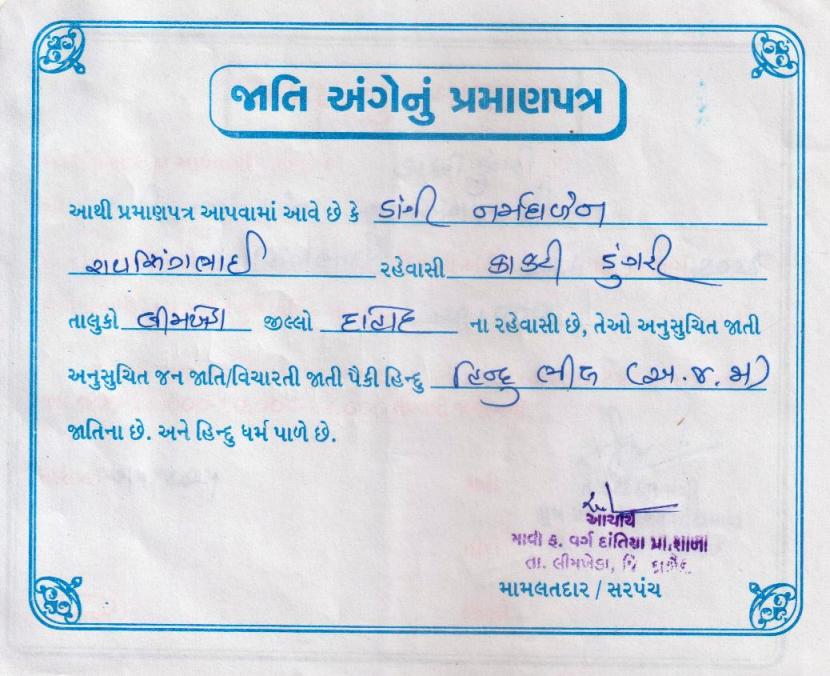 જાતિ અંગેનું પ્રમાણપત્ર
આથી પ્રમાણપત્ર આપવામાં આવે છે કે ડાંગી નર્મદાબેન
રહેવાસી કાકરી ડુંગરી
તાલુકો લીમખેડા જીલ્લો દાહોદ ના રહેવાસી છે, તેઓ અનુસુચિત જાતી
અનુસુચિત જન જાતિ/વિચારતી જાતી પૈકી હિન્દુ હિન્દુ ભીલ (અ.જ.જા)
જાતિના છે. અને હિન્દુ ધર્મ પાળે છે.
આચાર્ય
ફ. વર્ગ દાંતિયા પ્રા.શાળા
તા. લીમખેડા, જિ દાહોદ
મામલતદાર / સરપંચ